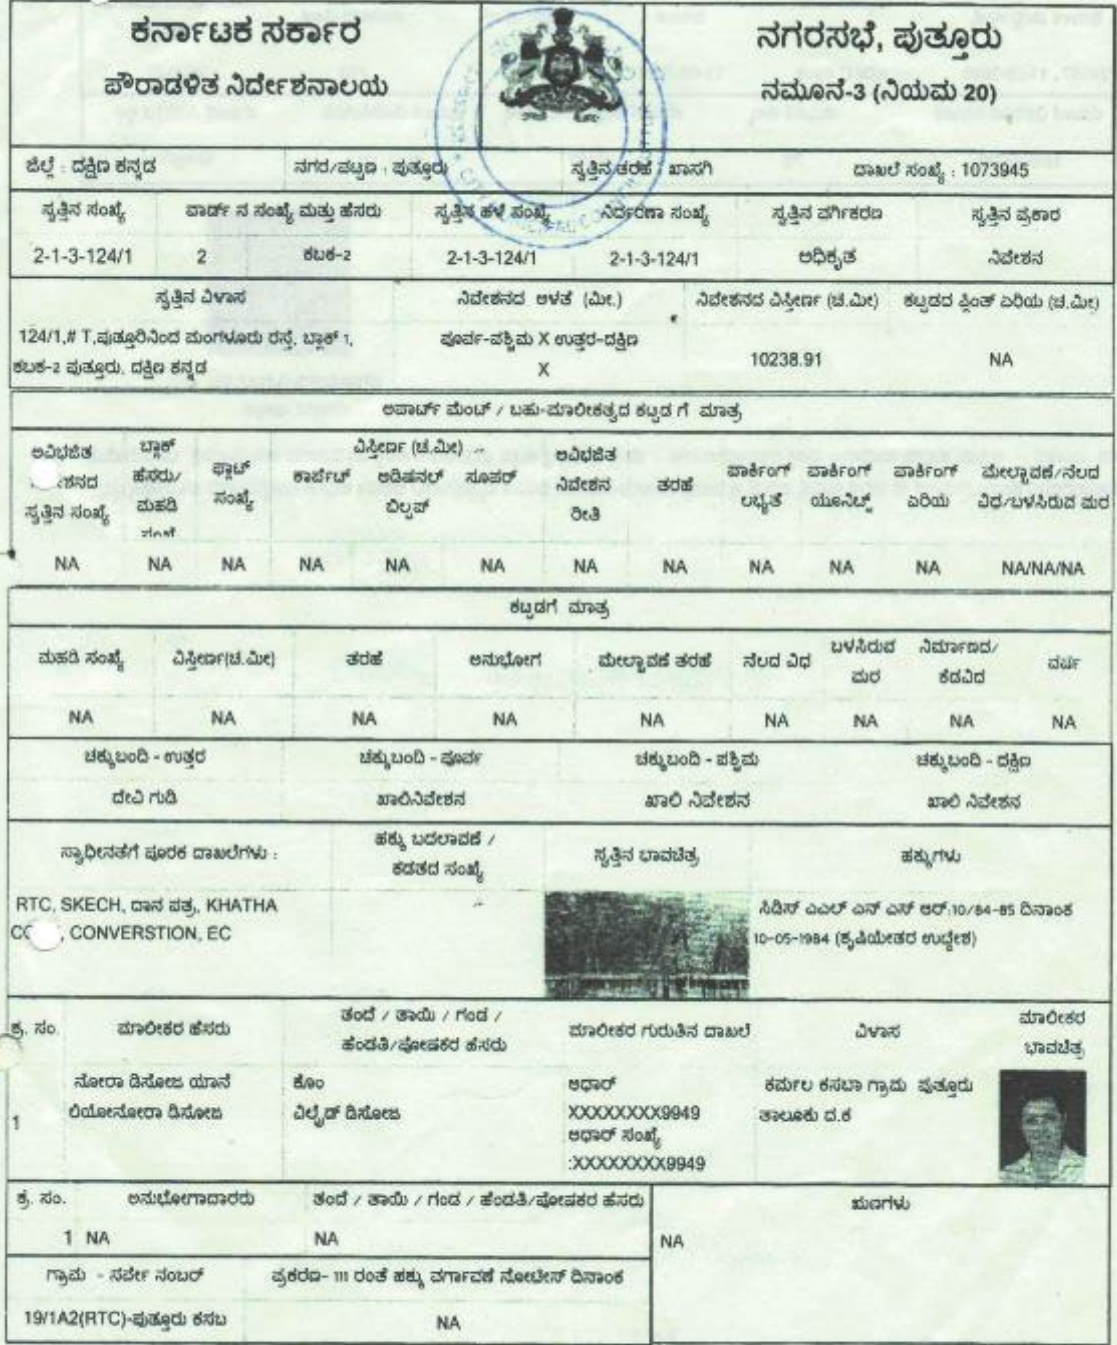 ಕರ್ನಾಟಕ ಸರ್ಕಾರ
ಪೌರಾಡಳಿತ ನಿರ್ದೇಶನಾಲಯ
ನಗರಸಭೆ, ಪುತ್ತೂರು
ನಮೂನೆ-3 (ನಿಯಮ 20)
ಜಿಲ್ಲೆ : ದಕ್ಷಿಣ ಕನ್ನಡ ನಗರ/ಪಟ್ಟಣ : ಪುತ್ತೂರು ಸ್ವತ್ತಿನ ತರಹೆ : ಖಾಸಗಿ ದಾಖಲೆ ಸಂಖ್ಯೆ : 1073945
ಸ್ವತ್ತಿನ ಸಂಖ್ಯೆ ವಾರ್ಡ್ ನ ಸಂಖ್ಯೆ ಮತ್ತು ಹೆಸರು ಸ್ವತ್ತಿನ ಹಳೆ ಸಂಖ್ಯೆ ನಿರ್ದರಣಾ ಸಂಖ್ಯೆ ಸ್ವತ್ತಿನ ವರ್ಗಿಕರಣ ಸ್ವತ್ತಿನ ಪ್ರಕಾರ
2-1-3-124/1 2 ಕಬಕ-2 2-1-3-124/1 2-1-3-124/1 ಅಧಿಕೃತ ನಿವೇಶನ
ಸ್ವತ್ತಿನ ವಿಳಾಸ ನಿವೇಶನದ ಅಳತೆ (ಮೀ.) ನಿವೇಶನದ ವಿಸ್ತೀರ್ಣ (ಚ.ಮೀ) ಕಟ್ಟಡದ ಪ್ಲಿಂತ್ ಏರಿಯ (ಚ.ಮೀ)
124/1,# T,ಪುತ್ತೂರಿನಿಂದ ಮಂಗಳೂರು ರಸ್ತೆ, ಬ್ಲಾಕ್ 1, ಪೂರ್ವ-ಪಶ್ಚಿಮ X ಉತ್ತರ-ದಕ್ಷಿಣ
ಕಬಕ-2 ಪುತ್ತೂರು, ದಕ್ಷಿಣ ಕನ್ನಡ X 10238.91 NA
ಅಪಾರ್ಟ್ ಮೆಂಟ್ / ಬಹು-ಮಾಲೀಕತ್ವದ ಕಟ್ಟಡ ಗೆ ಮಾತ್ರ
ಅವಿಭಜಿತ ಬ್ಲಾಕ್ ವಿಸ್ತೀರ್ಣ (ಚ.ಮೀ) ಅವಿಭಜಿತ
ಹೆಸರು/ ಫ್ಲಾಟ್ ಕಾರ್ಪೆಟ್ ಅಡಿಷನಲ್ ಸೂಪರ್ ನಿವೇಶನ ತರಹೆ ಪಾರ್ಕಿಂಗ್ ಪಾರ್ಕಿಂಗ್ ಪಾರ್ಕಿಂಗ್ ಮೇಲ್ಚಾವಣೆ/ನೆಲದ
ಸ್ವತ್ತಿನ ಸಂಖ್ಯೆ ಮಹಡಿ ಸಂಖ್ಯೆ ಬಿಲ್ಟಪ್ ರೀತಿ ಲಭ್ಯತೆ ಯೂನಿಟ್ಸ್ ಏರಿಯ ವಿಧ/ಬಳಸಿರುವ ಮರ
NA NA NA NA NA NA NA NA NA NA NA NA/NA/NA
ಕಟ್ಟಡಗೆ ಮಾತ್ರ
ಮಹಡಿ ಸಂಖ್ಯೆ ವಿಸ್ತೀರ್ಣ(ಚ.ಮೀ) ತರಹೆ ಅನುಭೋಗ ಮೇಲ್ಚಾವಣೆ ತರಹೆ ನೆಲದ ವಿಧ ಬಳಸಿರುವ ಮರ ನಿರ್ಮಾಣದ/ ಕೆಡವಿದ ವರ್ಷ
NA NA NA NA NA NA NA NA NA
ಚಕ್ಕುಬಂದಿ - ಉತ್ತರ ಚಕ್ಕುಬಂದಿ - ಪೂರ್ವ ಚಕ್ಕುಬಂದಿ - ಪಶ್ಚಿಮ ಚಕ್ಕುಬಂದಿ - ದಕ್ಷಿಣ
ದೇವಿ ಗುಡಿ ಖಾಲಿನಿವೇಶನ ಖಾಲಿ ನಿವೇಶನ ಖಾಲಿ ನಿವೇಶನ
ಸ್ವಾಧೀನತೆಗೆ ಪೂರಕ ದಾಖಲೆಗಳು : ಹಕ್ಕು ಬದಲಾವಣೆ / ಕಡತದ ಸಂಖ್ಯೆ ಸ್ವತ್ತಿನ ಭಾವಚಿತ್ರ ಹಕ್ಕುಗಳು
RTC, SKECH, ದಾನ ಪತ್ರ, KHATHA ಸಿಡಿಸ್ ಎಎಲ್ ಎನ್ ಎಸ್ ಆರ್:10/84-85 ದಿನಾಂಕ
CONVERSTION, EC 10-05-1984 (ಕೃಷಿಯೇತರ ಉದ್ದೇಶ)
ಕ್ರ. ಸಂ. ಮಾಲೀಕರ ಹೆಸರು ತಂದೆ / ತಾಯಿ / ಗಂಡ / ಹೆಂಡತಿ/ಪೋಷಕರ ಹೆಸರು ಮಾಲೀಕರ ಗುರುತಿನ ದಾಖಲೆ ವಿಳಾಸ ಮಾಲೀಕರ ಭಾವಚಿತ್ರ
ನೋರಾ ಡಿಸೋಜ ಯಾನೆ ಕೊಂ ಆಧಾರ್ ಕರ್ಮಲ ಕಸಬಾ ಗ್ರಾಮ ಪುತ್ತೂರು
1 ಲಿಯೋನೋರಾ ಡಿಸೋಜ ವಿಲ್ಫ್ರೆಡ್ ಡಿಸೋಜ XXXXXXXX9949 ತಾಲೂಕು ದ.ಕ
ಆಧಾರ್ ಸಂಖ್ಯೆ
:XXXXXXXX9949
ಕ್ರ. ಸಂ. ಅನುಭೋಗಾದಾರರು ತಂದೆ / ತಾಯಿ / ಗಂಡ / ಹೆಂಡತಿ/ಪೋಷಕರ ಹೆಸರು ಋಣಗಳು
1 NA NA NA
ಗ್ರಾಮ - ಸರ್ವೇ ನಂಬರ್ ಪ್ರಕರಣ- 111 ರಂತೆ ಹಕ್ಕು ವರ್ಗಾವಣೆ ನೋಟೀಸ್ ದಿನಾಂಕ
19/1A2(RTC)-ಪುತ್ತೂರು ಕಸಬ NA